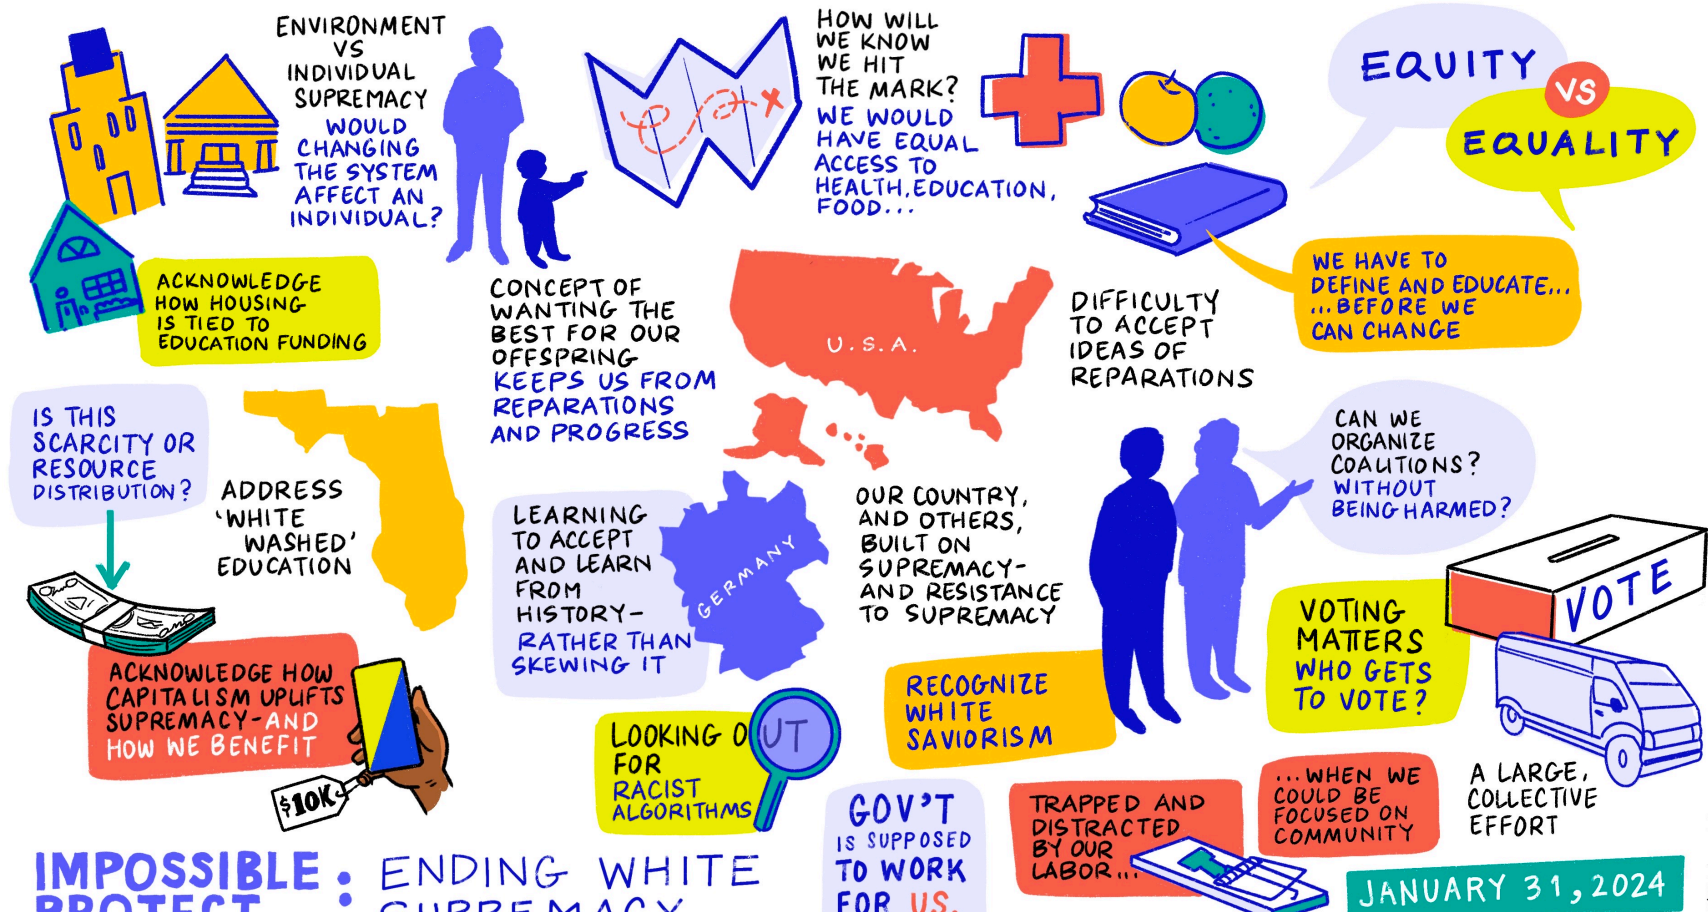 ENVIRONMENT
VS
INDIVIDUAL
SUPREMACY
WOULD
CHANGING
THE SYSTEM
AFFECT AN
INDIVIDUAL?
HOW WILL
WE KNOW
WE HIT
THE MARK?
WE WOULD
HAVE EQUAL
ACCESS TO
HEALTH, EDUCATION,
FOOD...
EQUITY
VS
EQUALITY
WE HAVE TO
DEFINE AND EDUCATE...
...BEFORE WE
CAN CHANGE
ACKNOWLEDGE
HOW HOUSING
IS TIED TO
EDUCATION FUNDING
CONCEPT OF
WANTING THE
BEST FOR OUR
OFFSPRING
KEEPS US FROM
REPARATIONS
AND PROGRESS
U.S.A.
DIFFICULTY
TO ACCEPT
IDEAS OF
REPARATIONS
IS THIS
SCARCITY OR
RESOURCE
DISTRIBUTION?
ADDRESS
'WHITE
WASHED'
EDUCATION
LEARNING
TO ACCEPT
AND LEARN
FROM
HISTORY-
RATHER THAN
SKEWING IT
GERMANY
OUR COUNTRY,
AND OTHERS,
BUILT ON
SUPREMACY-
AND RESISTANCE
TO SUPREMACY
CAN WE
ORGANIZE
COALITIONS?
WITHOUT
BEING HARMED?
VOTE
VOTING
MATTERS
WHO GETS
TO VOTE?
ACKNOWLEDGE HOW
CAPITALISM UPLIFTS
SUPREMACY-AND
HOW WE BENEFIT
$10K
LOOKING OUT
FOR
RACIST
ALGORITHMS
RECOGNIZE
WHITE
SAVIORISM
GOV'T
IS SUPPOSED
TO WORK
FOR US.
TRAPPED AND
DISTRACTED
BY OUR
LABOR...
...WHEN WE
COULD BE
FOCUSED ON
COMMUNITY
A LARGE,
COLLECTIVE
EFFORT
IMPOSSIBLE
PROJECT:
ENDING WHITE
SUPREMACY
JANUARY 31, 2024